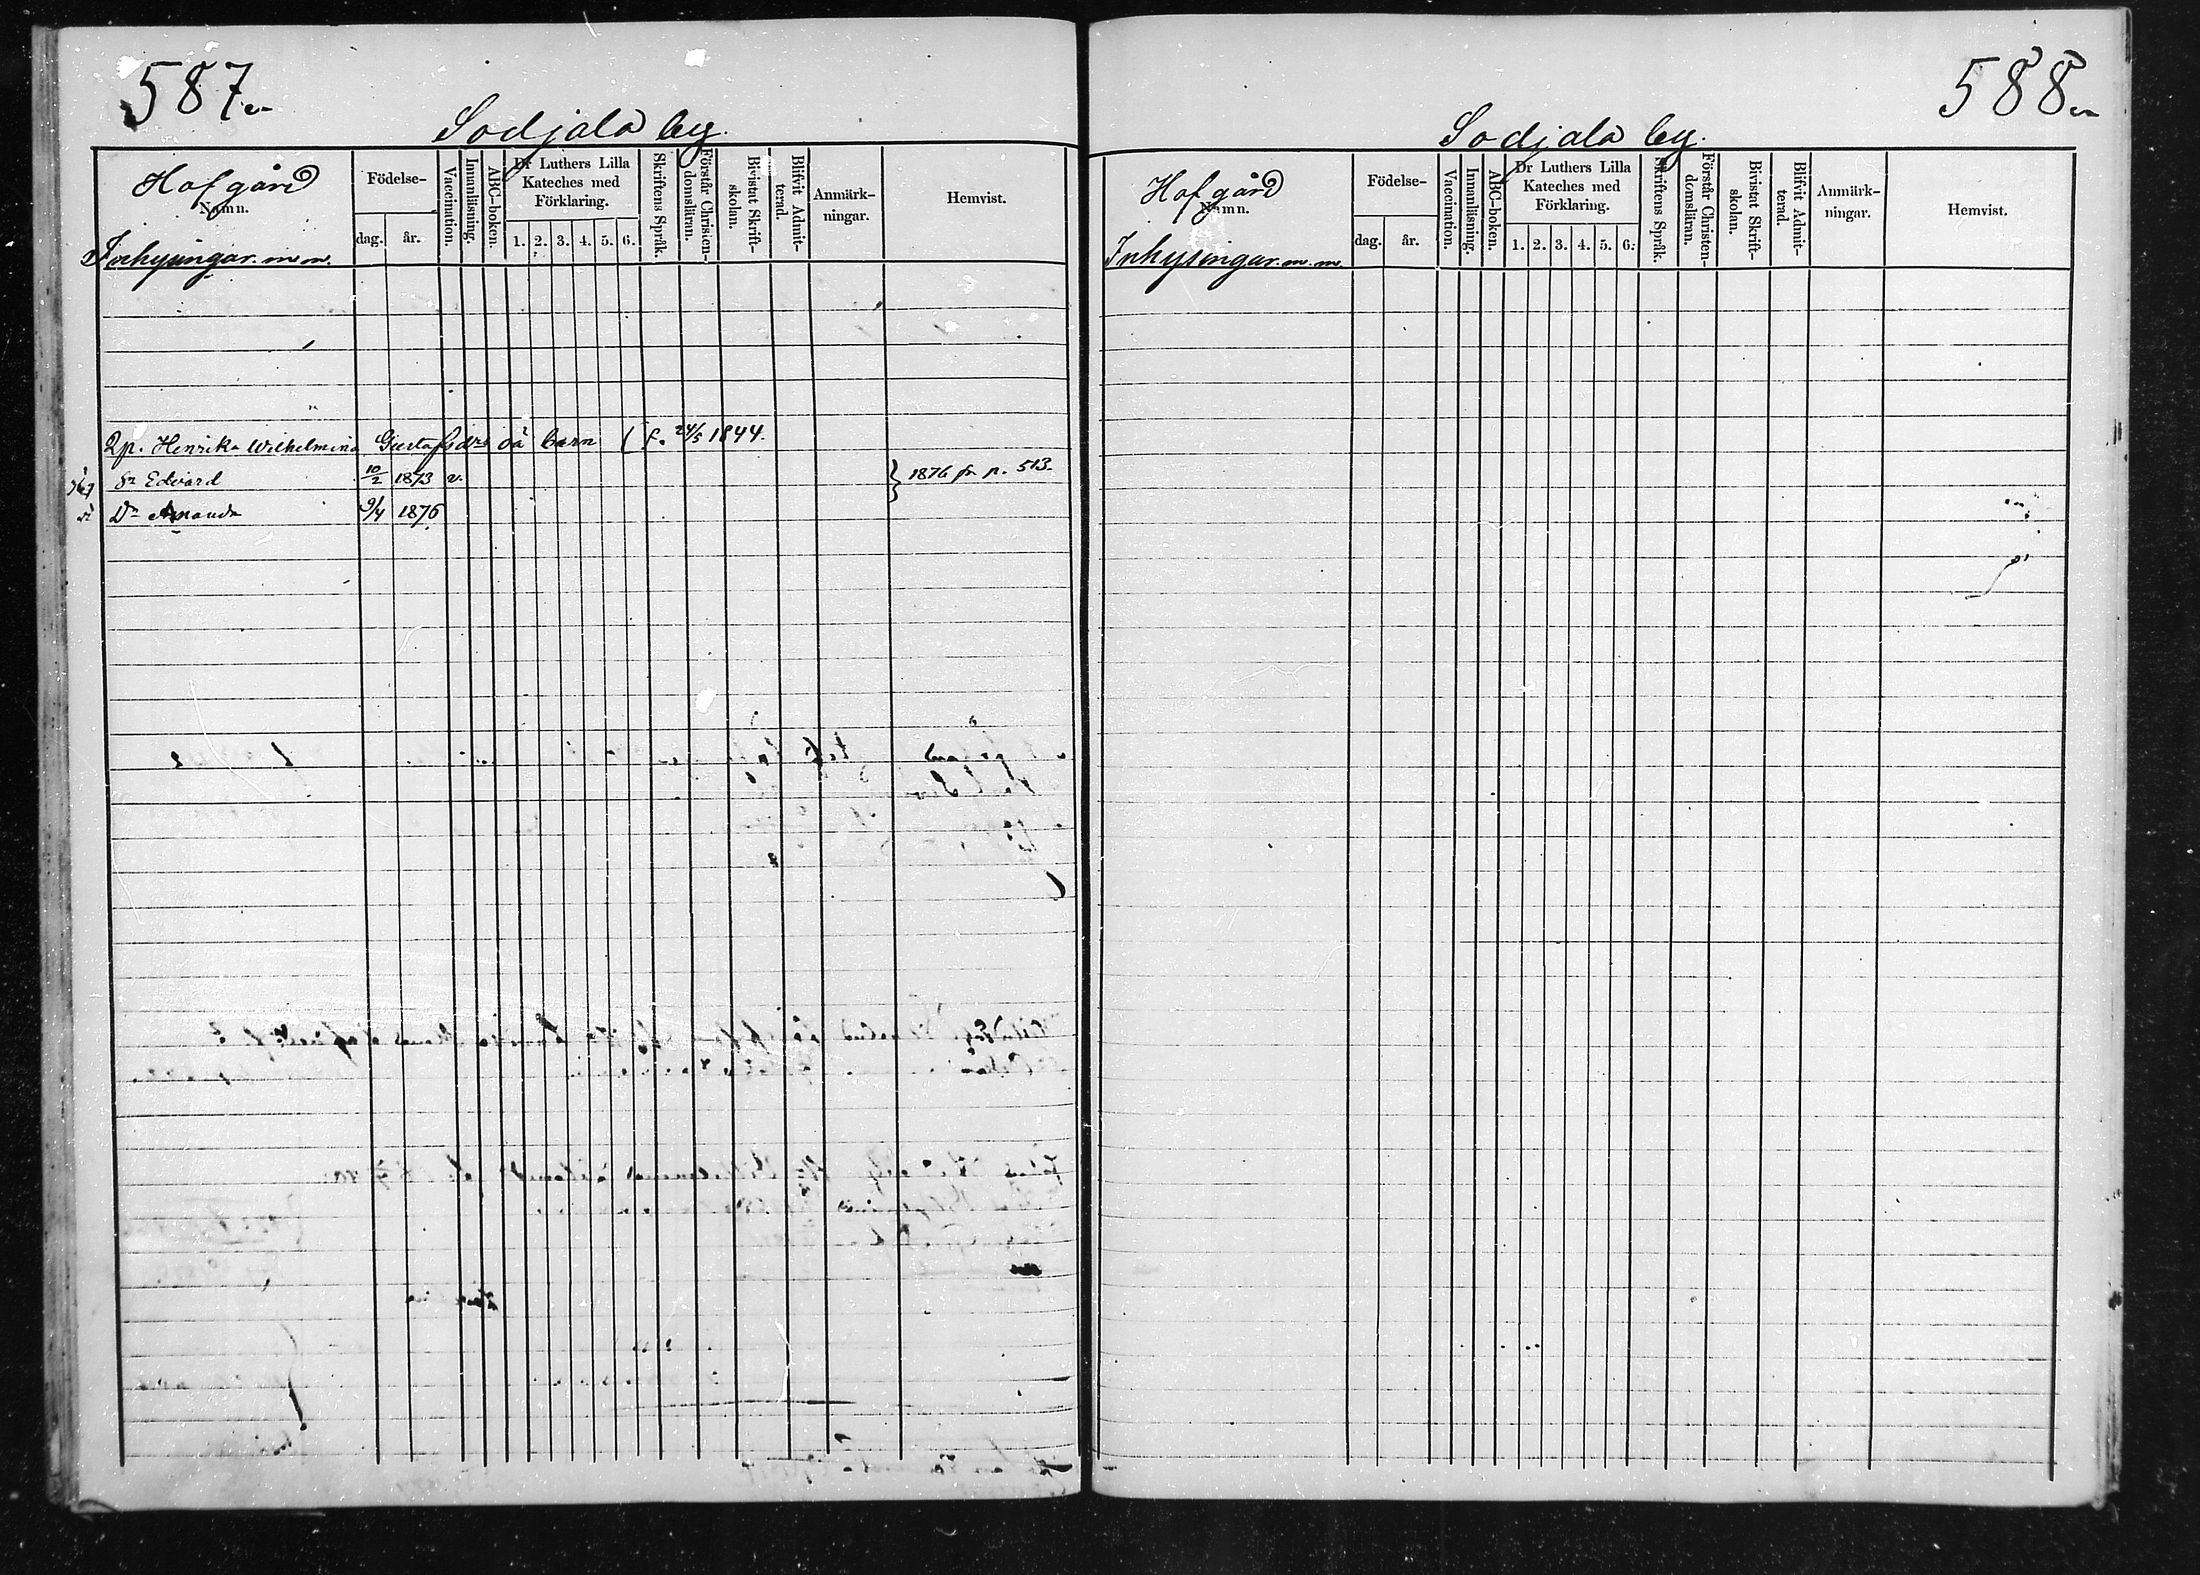 587.
Sodjala by.
Hofgård
Namn.
Födelse-
dag. år.
Vaccination.
Innanläsning.
ABC-boken.
Dr Luthers Lilla
Kateches med
Förklaring.
1. 2. 3. 4. 5. 6.
Skriftens Språk.
Förstår Christen-
domsläran.
Bivistat Skrift-
skolan.
Blifvit Admit-
terad.
Anmärk-
ningar.
Hemvist.
Inhysingar. m m.
Qp. Henrika Wilhelmina Gustafsdr oä barn (f. 24/5 1844.
Sn Edvard 10/2 1873 v. } 1876 fr p. 513.
Dr Amanda 9/4 1876
588.
Sodjala by.
Hofgård
Namn.
Födelse-
dag. år.
Vaccination.
Innanläsning.
ABC-boken.
Dr Luthers Lilla
Kateches med
Förklaring.
1. 2. 3. 4. 5. 6.
Skriftens Språk.
Förstår Christen-
domsläran.
Bivistat Skrift-
skolan.
Blifvit Admit-
terad.
Anmärk-
ningar.
Hemvist.
Inhysingar. m. m.